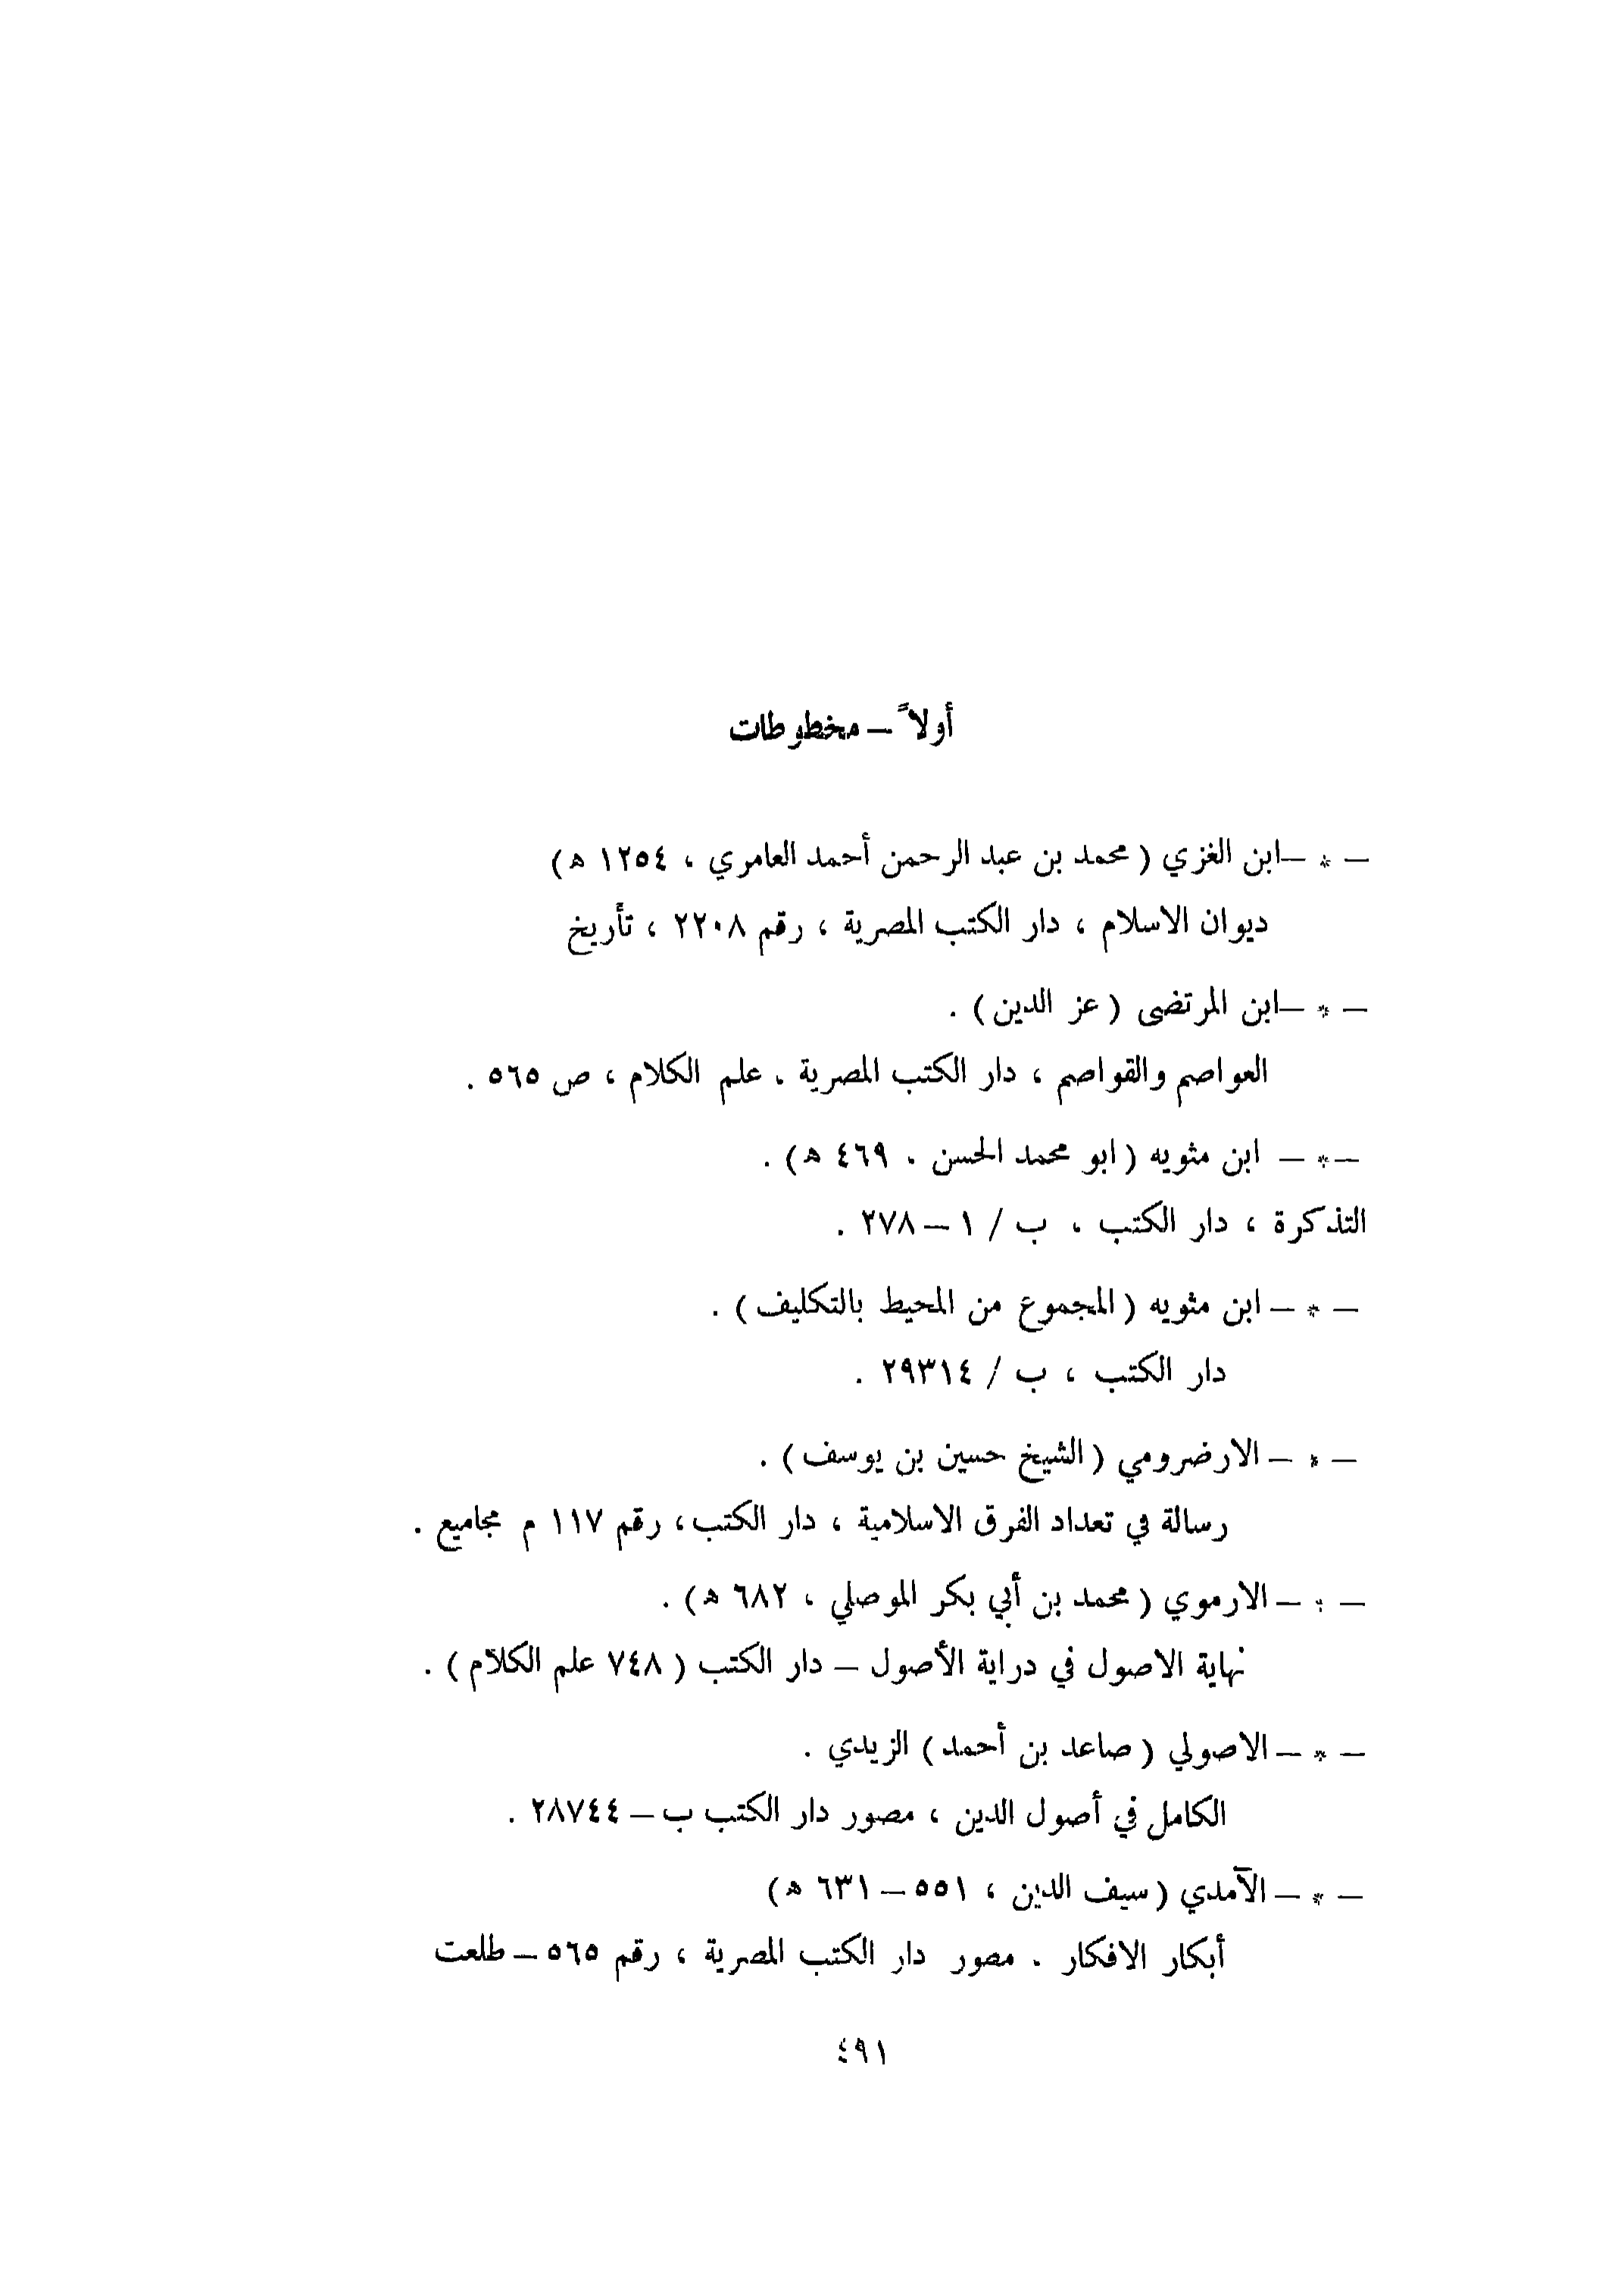 أولاً – مخطوطات
– * –ابن الغزي ( محمد بن عبد الرحمن أحمد العامري ، ١٢٥٤ ه )
ديوان الاسلام ، دار الكتب المصرية ، رقم ٢٢٠٨ ، تأريخ
– * –ابن المرتضى ( عز الدين ) .
العواصم والقواصم ، دار الكتب المصرية . علم الكلام ، ص ٥٦٥ .
– * – ابن مثويه ( ابو محمد الحسن ، ٤٦٩ ه ) .
التذكرة ، دار الكتب ، ب / ١ – ٢٧٨ .
– * – ابن مثويه ( المجموع من المحيط بالتكليف ) .
دار الكتب ، ب / ٢٩٣١٤ .
– * – الارضرومي ( الشيخ حسين بن يوسف ) .
رسالة في تعداد الفرق الاسلامية ، دار الكتب ، رقم ١١٧ م مجاميع .
– * – الارموي ( محمد بن أبي بكر الموصلي ، ٦٨٢ ه ) .
نهاية الاصول في دراية الأصول – دار الكتب ( ٧٤٨ علم الكلام ) .
– * – الاصولي ( صاعد بن أحمد ) الزيدي .
الكامل في أصول الدين ، مصور دار الكتب ب – ٢٨٧٤٤ .
– * – الآمدي ( سيف الدين ، ٥٥١ – ٦٣١ ه )
أبكار الافكار . مصور دار الكتب المصرية ، رقم ٥٦٥ – طلعت
٤٩١